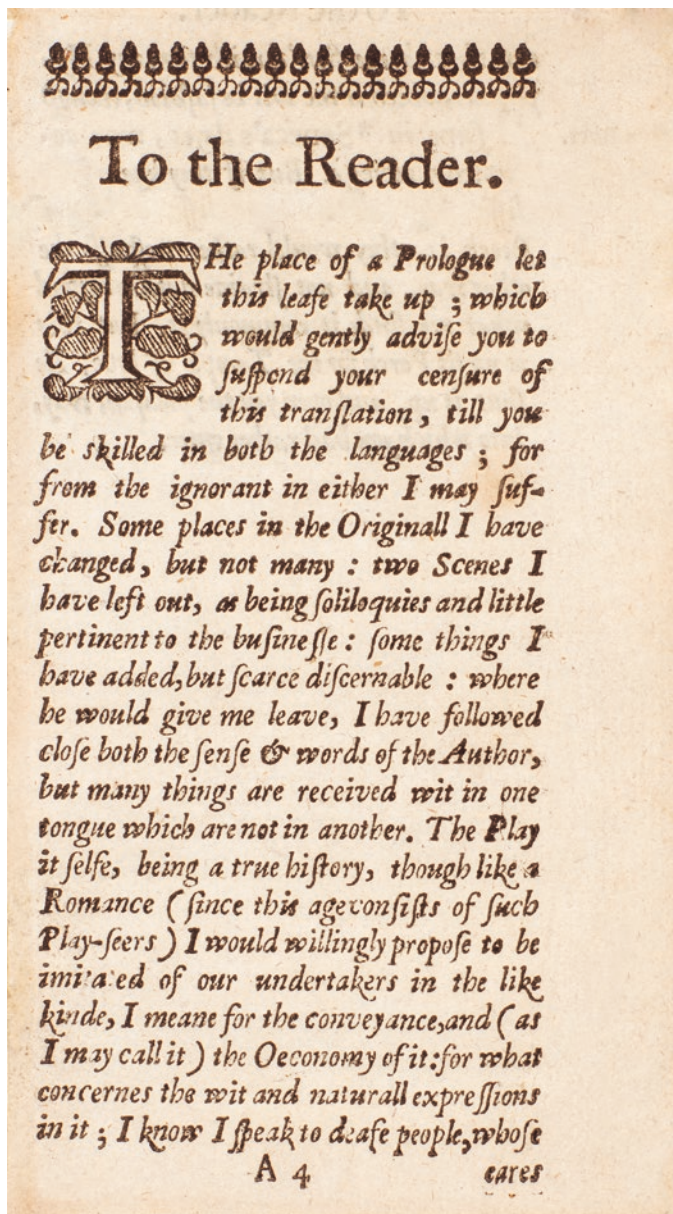 To the Reader.
THe place of a Prologue let
this leafe take up ; which
would gently advise you to
suspend your censure of
this translation, till you
be skilled in both the languages ; for
from the ignorant in either I may suf-
fer. Some places in the Originall I have
changed, but not many : two Scenes I
have left out, as being soliloquies and little
pertinent to the businesse : some things I
have added, but scarce discernable : where
he would give me leave, I have followed
close both the sense & words of the Author,
but many things are received wit in one
tongue which are not in another. The Play
it selfe, being a true history, though like a
Romance (since this age consists of such
Play-seers) I would willingly propose to be
imitated of our undertakers in the like
kinde, I meane for the conveyance, and (as
I may call it) the Oeconomy of it: for what
concernes the wit and naturall expressions
in it ; I know I speak to deafe people, whose
A 4 eares